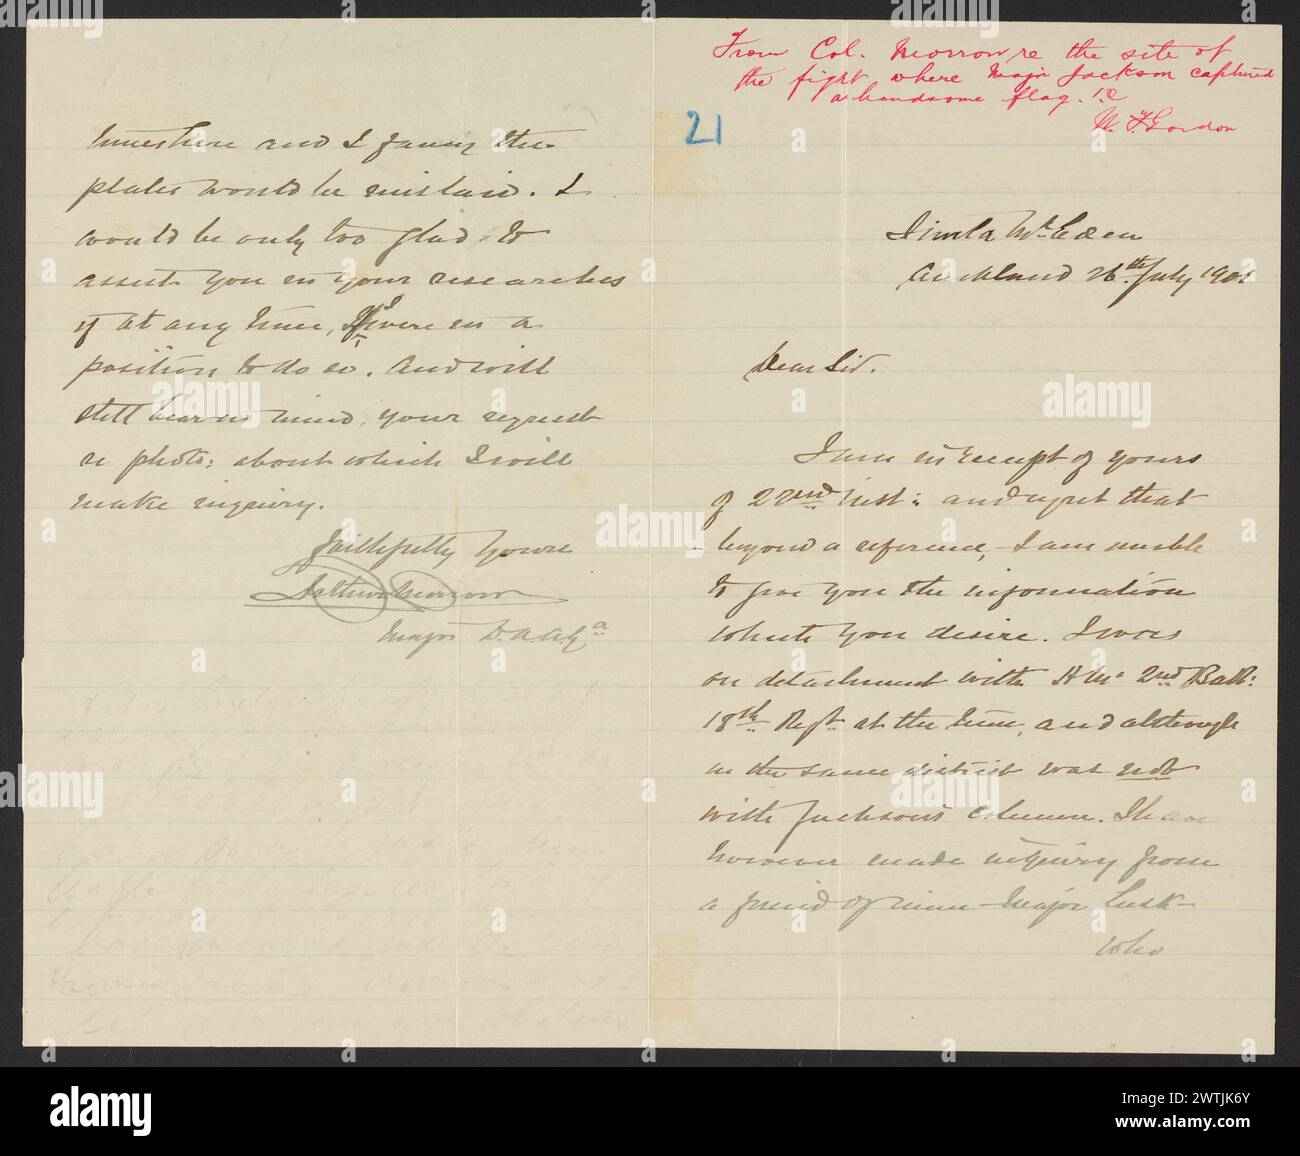 From Col. Morrow, re the site of
the fight, where Major Jackson captured
a handsome flag.
W. F. Gordon
21
Simla Mt. Eden
Auckland 26th July 1901
Dear Sir.
I am in receipt of yours
of 22nd inst: and regret that
beyond a reference, I am unable
to give you the information
which you desire. I was
on detachment with H Ms 2nd Batt:
18th Regt. at the time, and although
in the same district was not
with Jackson's column. I have
however made inquiry from
a friend of mine Major Lusk
who
and I fancy the
plates would be mislaid. I
would be only too glad to
assist you in your researches
if at any time, I were in a
position to do so. And will
still bear in mind, your request
re photo: about which I will
make inquiry.
Faithfully Yours
Arthur Morrow
Major D.A.A.Ga
alamy
Image ID: 2WTJK6Y
www.alamy.com